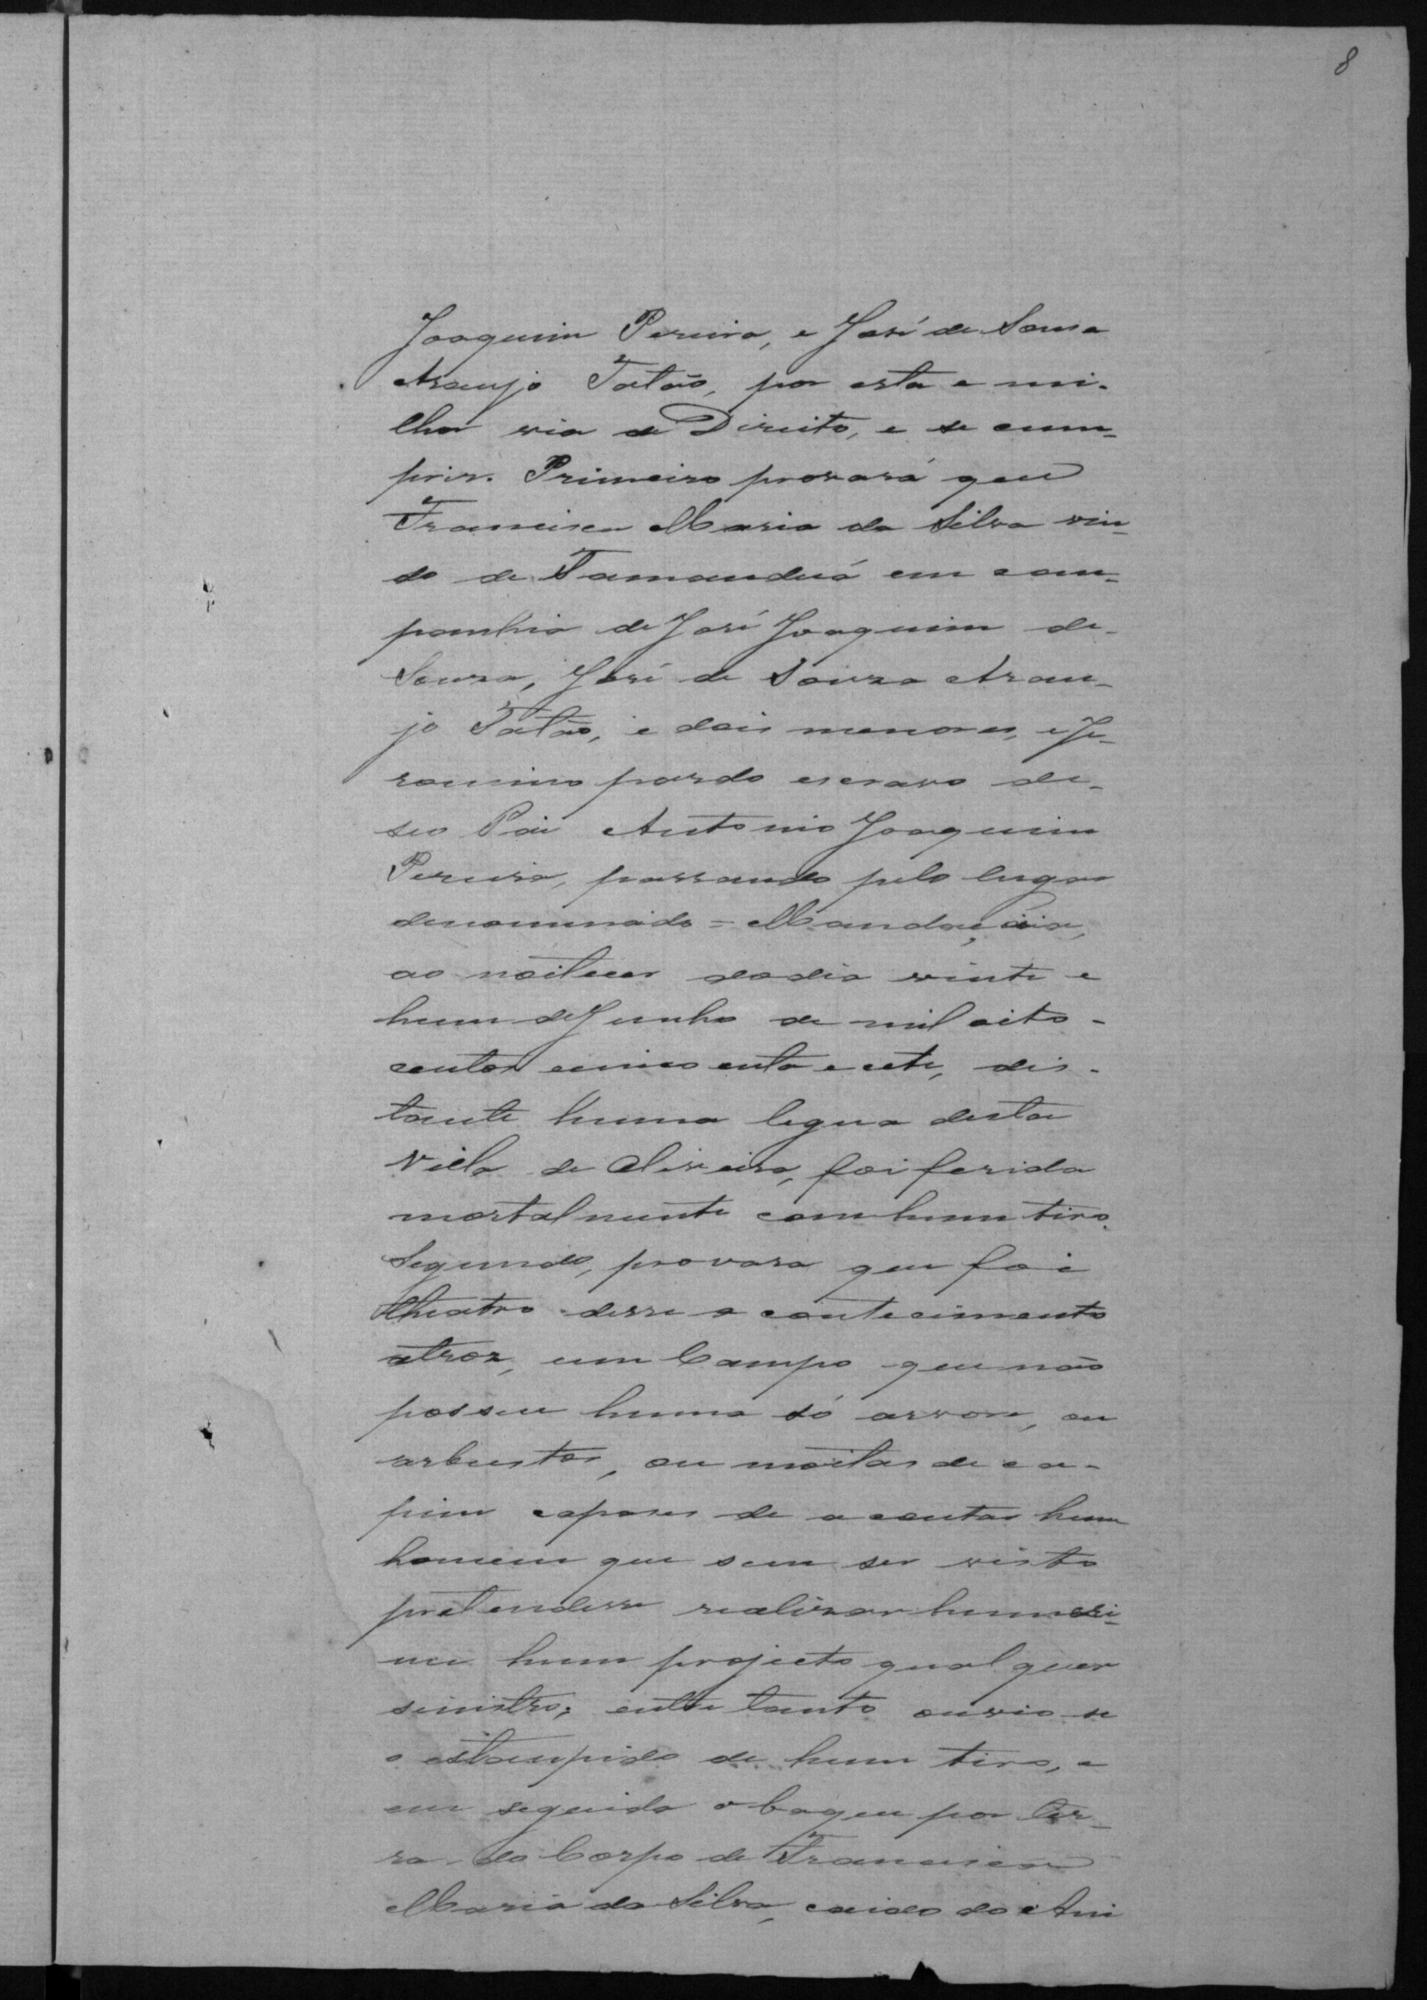 8
Joaquim Pereira, e José de Sousa
Araujo Tatão, por esta e mi-
lhor via de Direito, e se cum-
prir. Primeiro provará que
Francisca Maria da Silva vin-
do de Tamanduá em com-
panhia de José Joaquim de
Souza, José de Souza Arau-
jo Tatão, e dois menores, e Je-
ronimo pardo escravo de
seo Pai Antonio Joaquim
Pereira, passando pelo lugar
denominado = Mandaçaia,
ao noitecer do dia vinte e
hum de Junho de mil oito-
centos cincoenta e cete, dis-
tante huma legua desta
Villa de Oliveira, foi ferida
mortalmente com hum tiro.
Segundo, provara que foi
theatro desse acontecimento
atroz, um Campo que não
possue huma só arvore, ou
arbustos, ou moitas de ca-
pim capases de acoutar hum
homem que sem ser visto
pretendesse realisar hum cri-
me hum projecto qualquer
sinistro; entretanto ouvio-se
o estampido de hum tiro, e
em seguida o baque por ter-
ra do Corpo de Francisca
Maria da Silva, caido do Ani